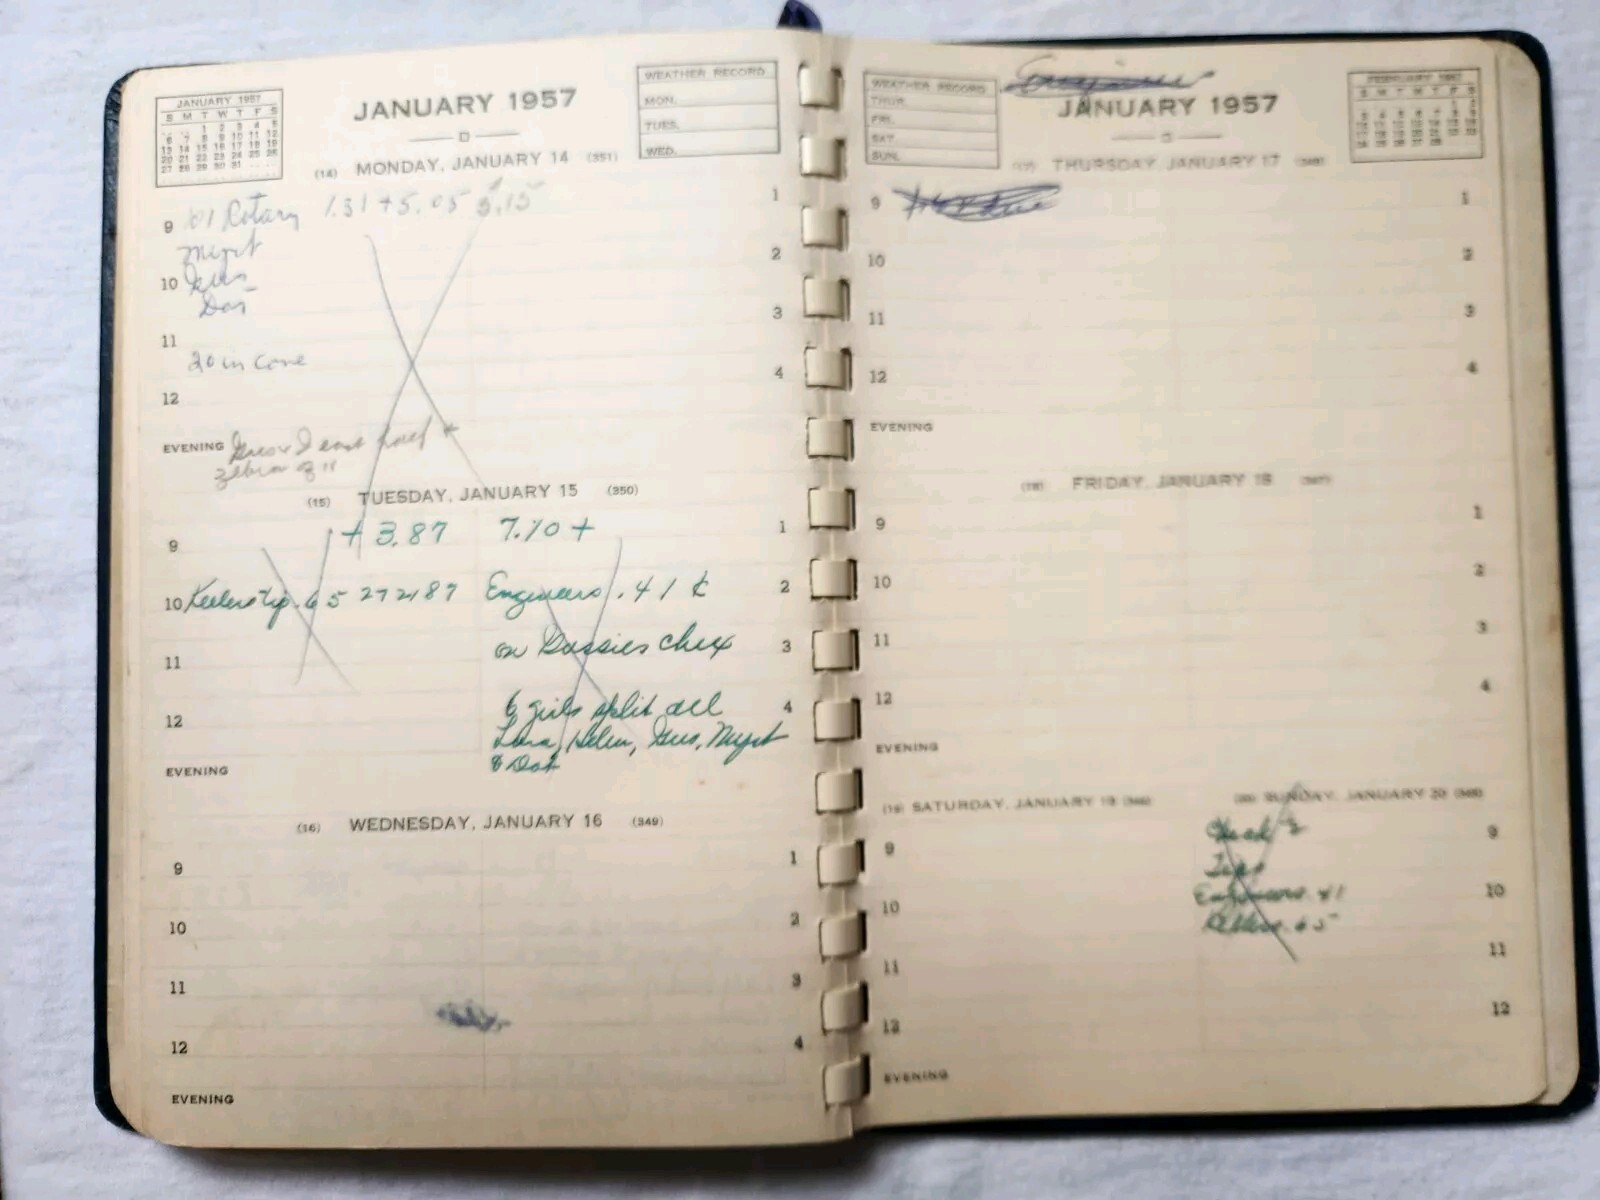 JANUARY 1957
S M T W T F S
1 2 3 4 5
6 7 8 9 10 11 12
13 14 15 16 17 18 19
20 21 22 23 24 25 26
27 28 29 30 31
JANUARY 1957
WEATHER RECORD
MON.
TUES.
WED.
(14) MONDAY, JANUARY 14 (351)
Rotary 1.31 + 5.05 5.15
9 1
Myrt
2
10 Gus
Dot
3
11
20 in
4
12
EVENING
(15) TUESDAY, JANUARY 15 (350)
+ 3.87 7.10 +
9 1
10 Keelers tip .65 272187 Engineers .41 ¢ 2
on Gussies chex 3
11
6 girls split all 4
12 Lura, Helen, Gus, Myrt
& Dot
EVENING
(16) WEDNESDAY, JANUARY 16 (349)
9 1
10 2
11 3
12 4
EVENING
WEATHER RECORD
THUR.
FRI.
SAT.
SUN.
JANUARY 1957
FEBRUARY 1957
S M T W T F S
(17) THURSDAY, JANUARY 17 (348)
9 1
10 2
11 3
12 4
EVENING
(18) FRIDAY, JANUARY 18 (347)
9 1
10 2
11 3
12 4
EVENING
(19) SATURDAY, JANUARY 19 (346)
9
10
11
12
EVENING
(20) SUNDAY, JANUARY 20 (345)
Check 2 9
Tips
Engineers .41 10
Keelers .65
11
12